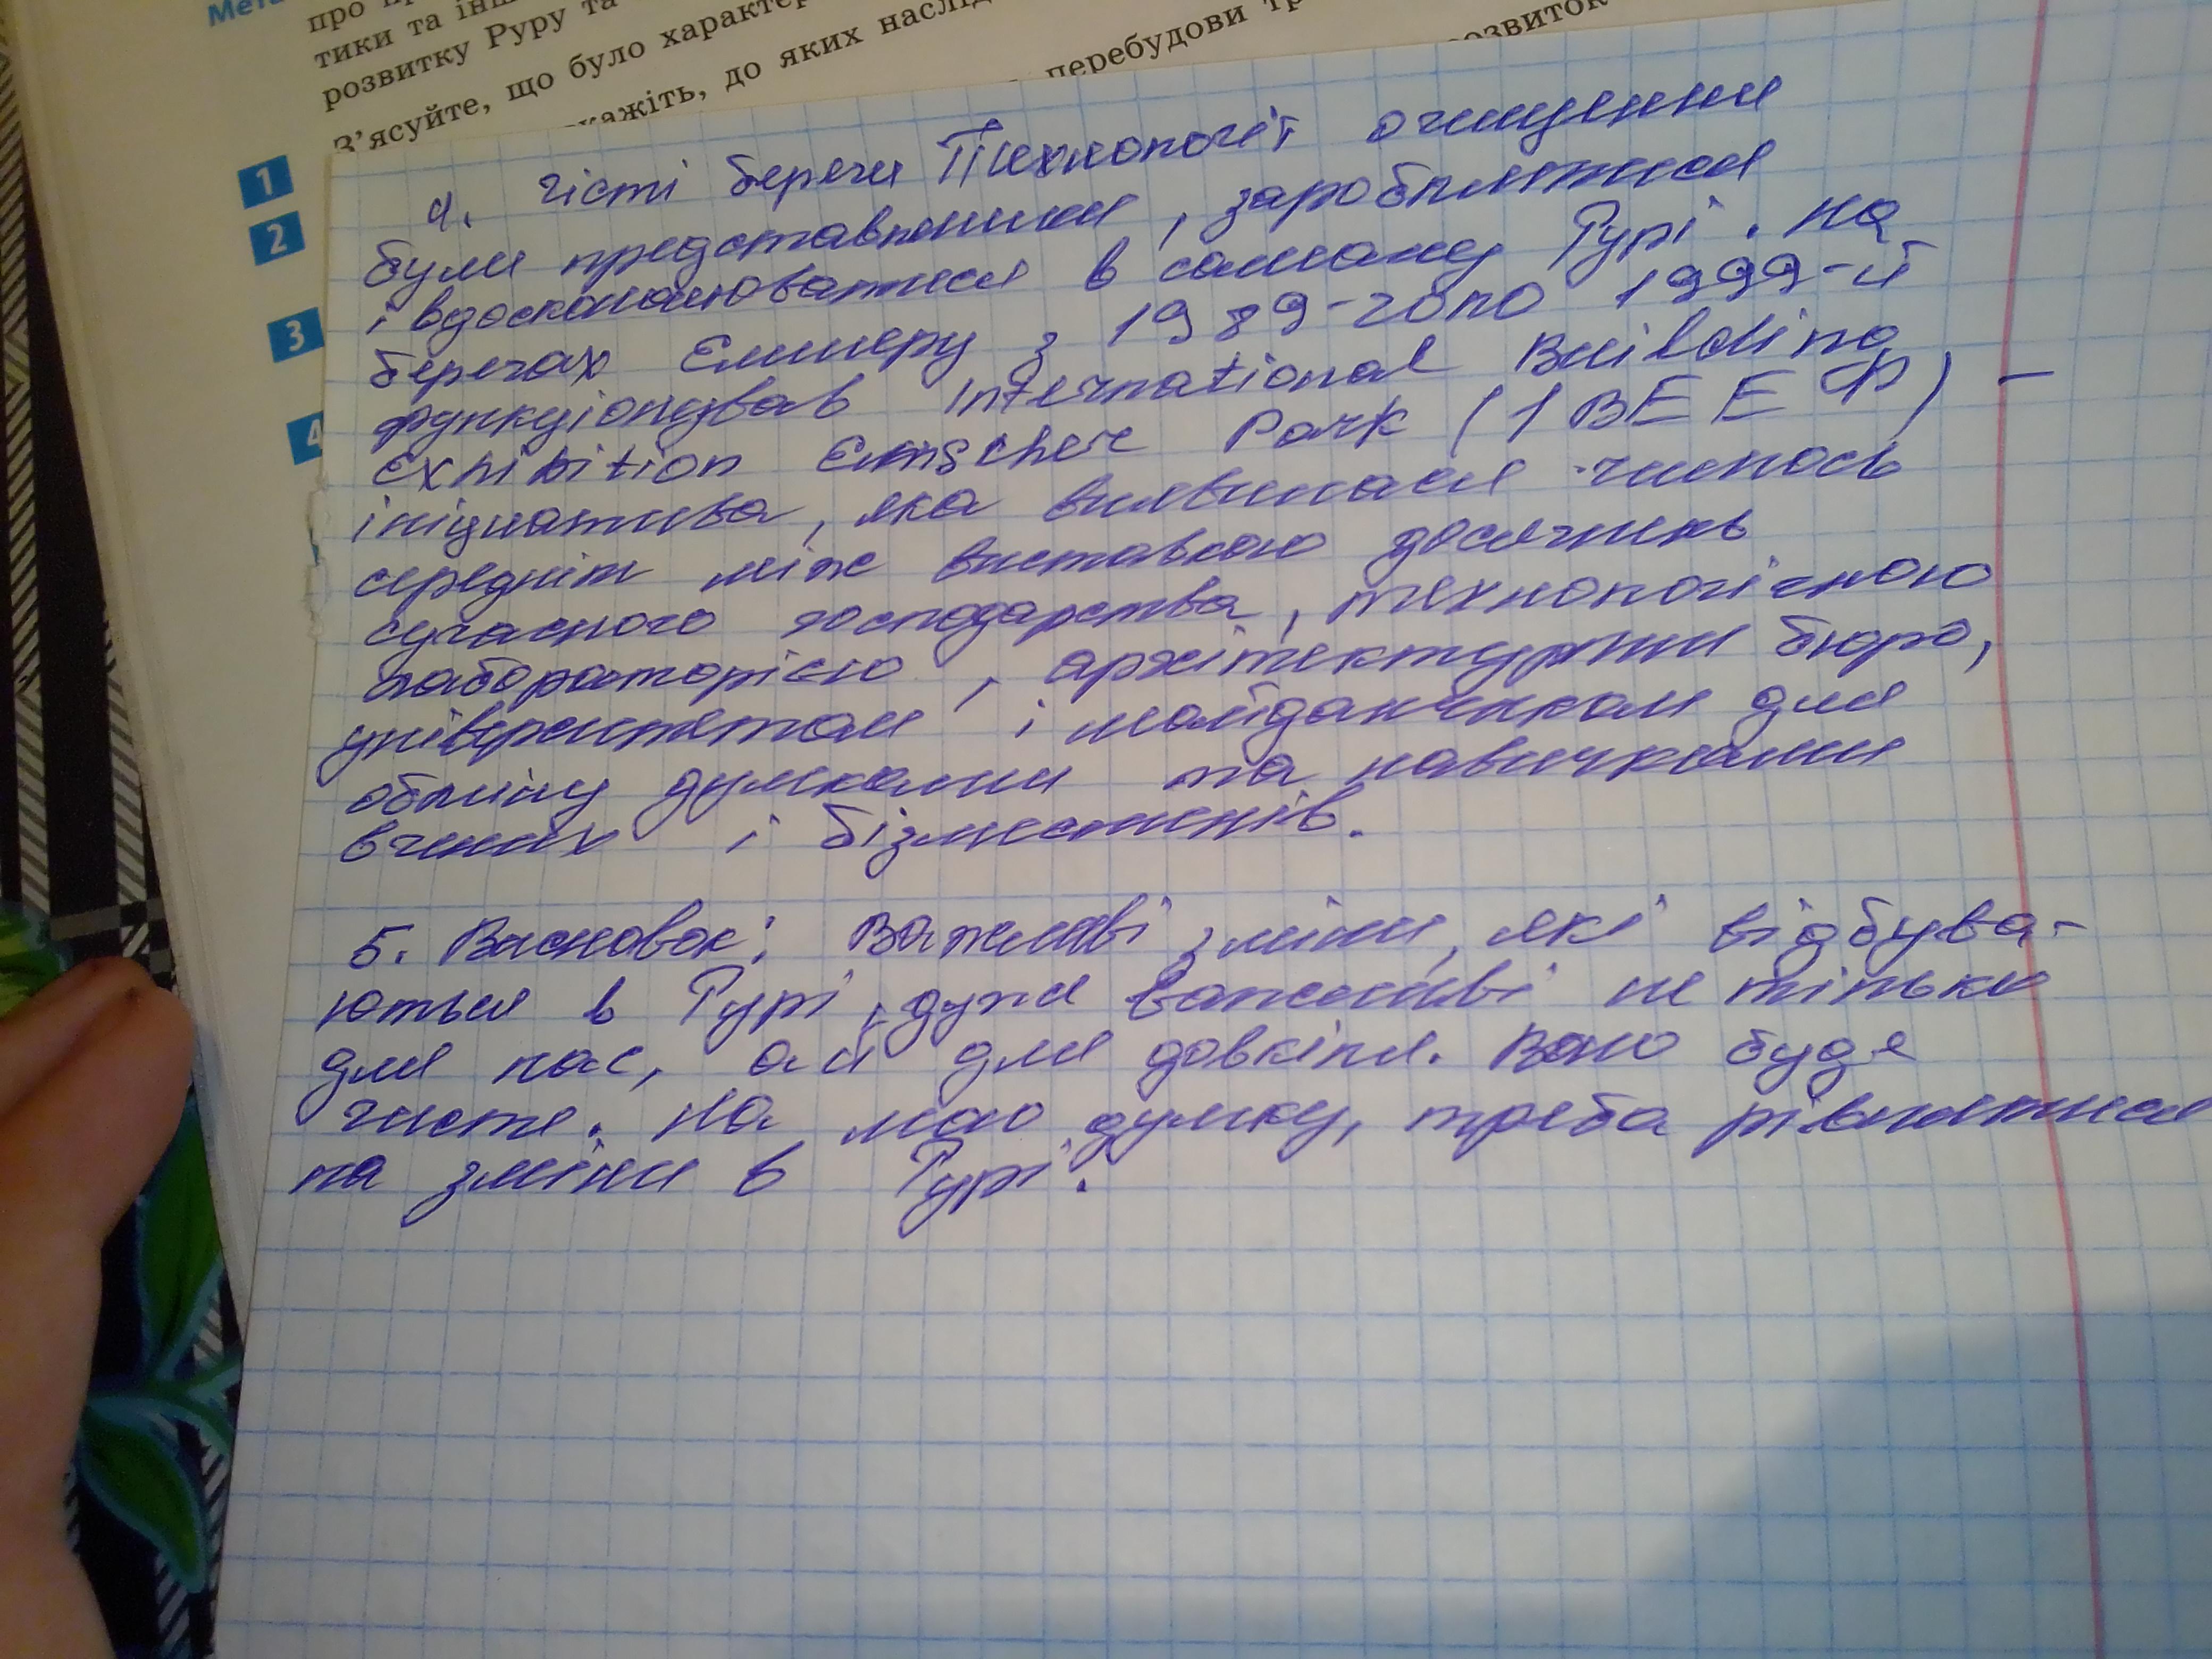 Мета
про пр
тики та інш
розвитку Руру та
З’ясуйте, що було характер
кажіть, до яких наслід
перебудови тр
озвиток
1
2
3
4
4. Чісті береги Технології очищення
були представленими, зароблятися
і вдосконалюватися в самому Рурі. На
берегах Емшеру з 1989-го по 1999-й
функціонував International Building
Exhibition Emscher Park (IBEEP) –
ініціатива, яка виявилася чимось
середнім між виставкою досягнень
сучасного господарства, технологічною
лабораторією, архітектурним бюро,
університетом і майданчиком для
обміну думками та навичками
вчених і бізнесменів.
5. Висновок: Важливі зміни, які відбува-
ються в Рурі, дуже важливі не тільки
для нас, а й для довкілля. Воно буде
чисте. На мою думку, треба рівнятися
на зміни в Рурі.